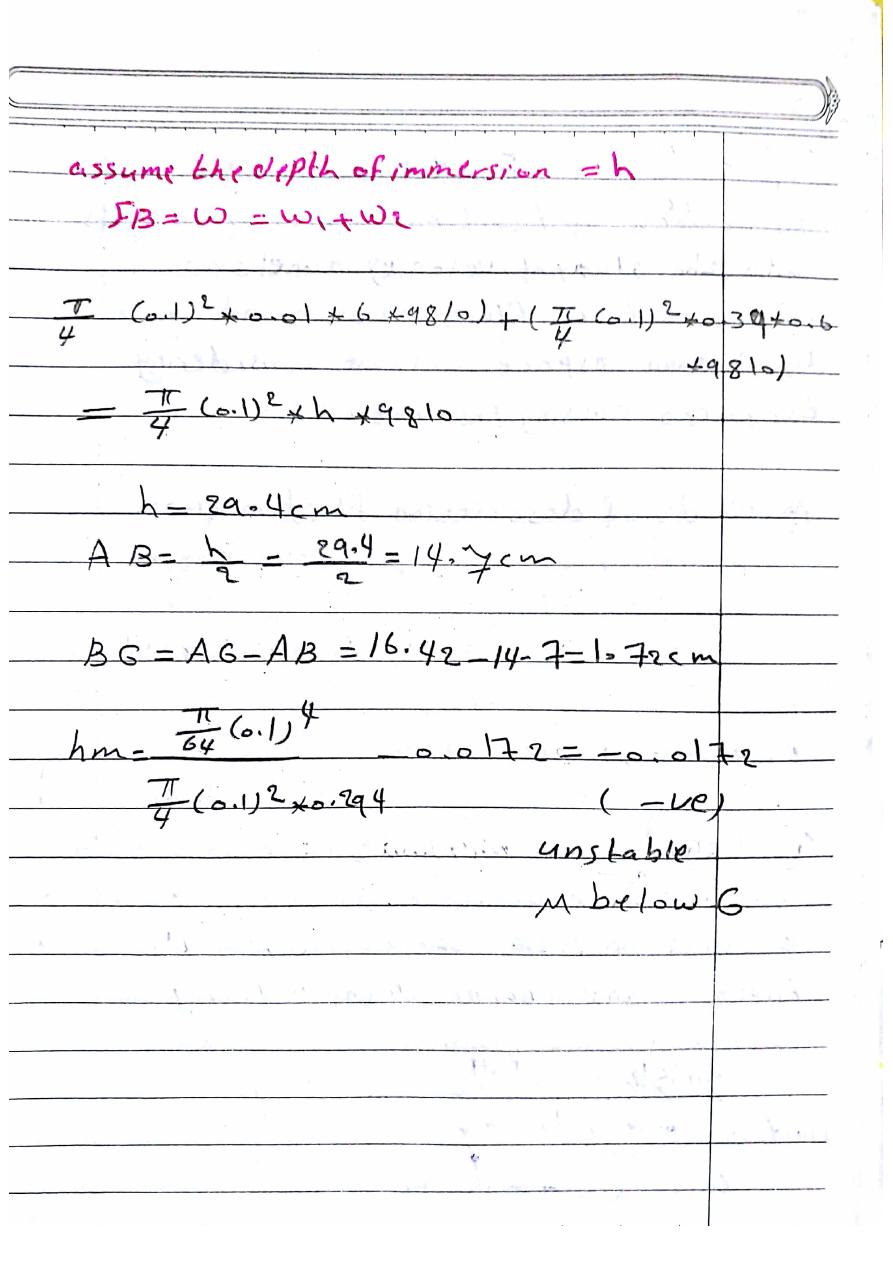 assume the depth of immersion = h
FB = W = W1 + W2
π/4 (0.1)² * 0.01 * 6 * 9810) + (π/4 (0.1)² * 0.39 * 0.6
* 9810)
= π/4 (0.1)² * h * 9810
h = 29.4cm
AB = h/2 = 29.4/2 = 14.7cm
BG = AG - AB = 16.42 - 14.7 = 1.72cm
hm = π/64 (0.1)⁴ / π/4 (0.1)² * 0.294 - 0.0172 = -0.0172
(-ve)
unstable
M below G